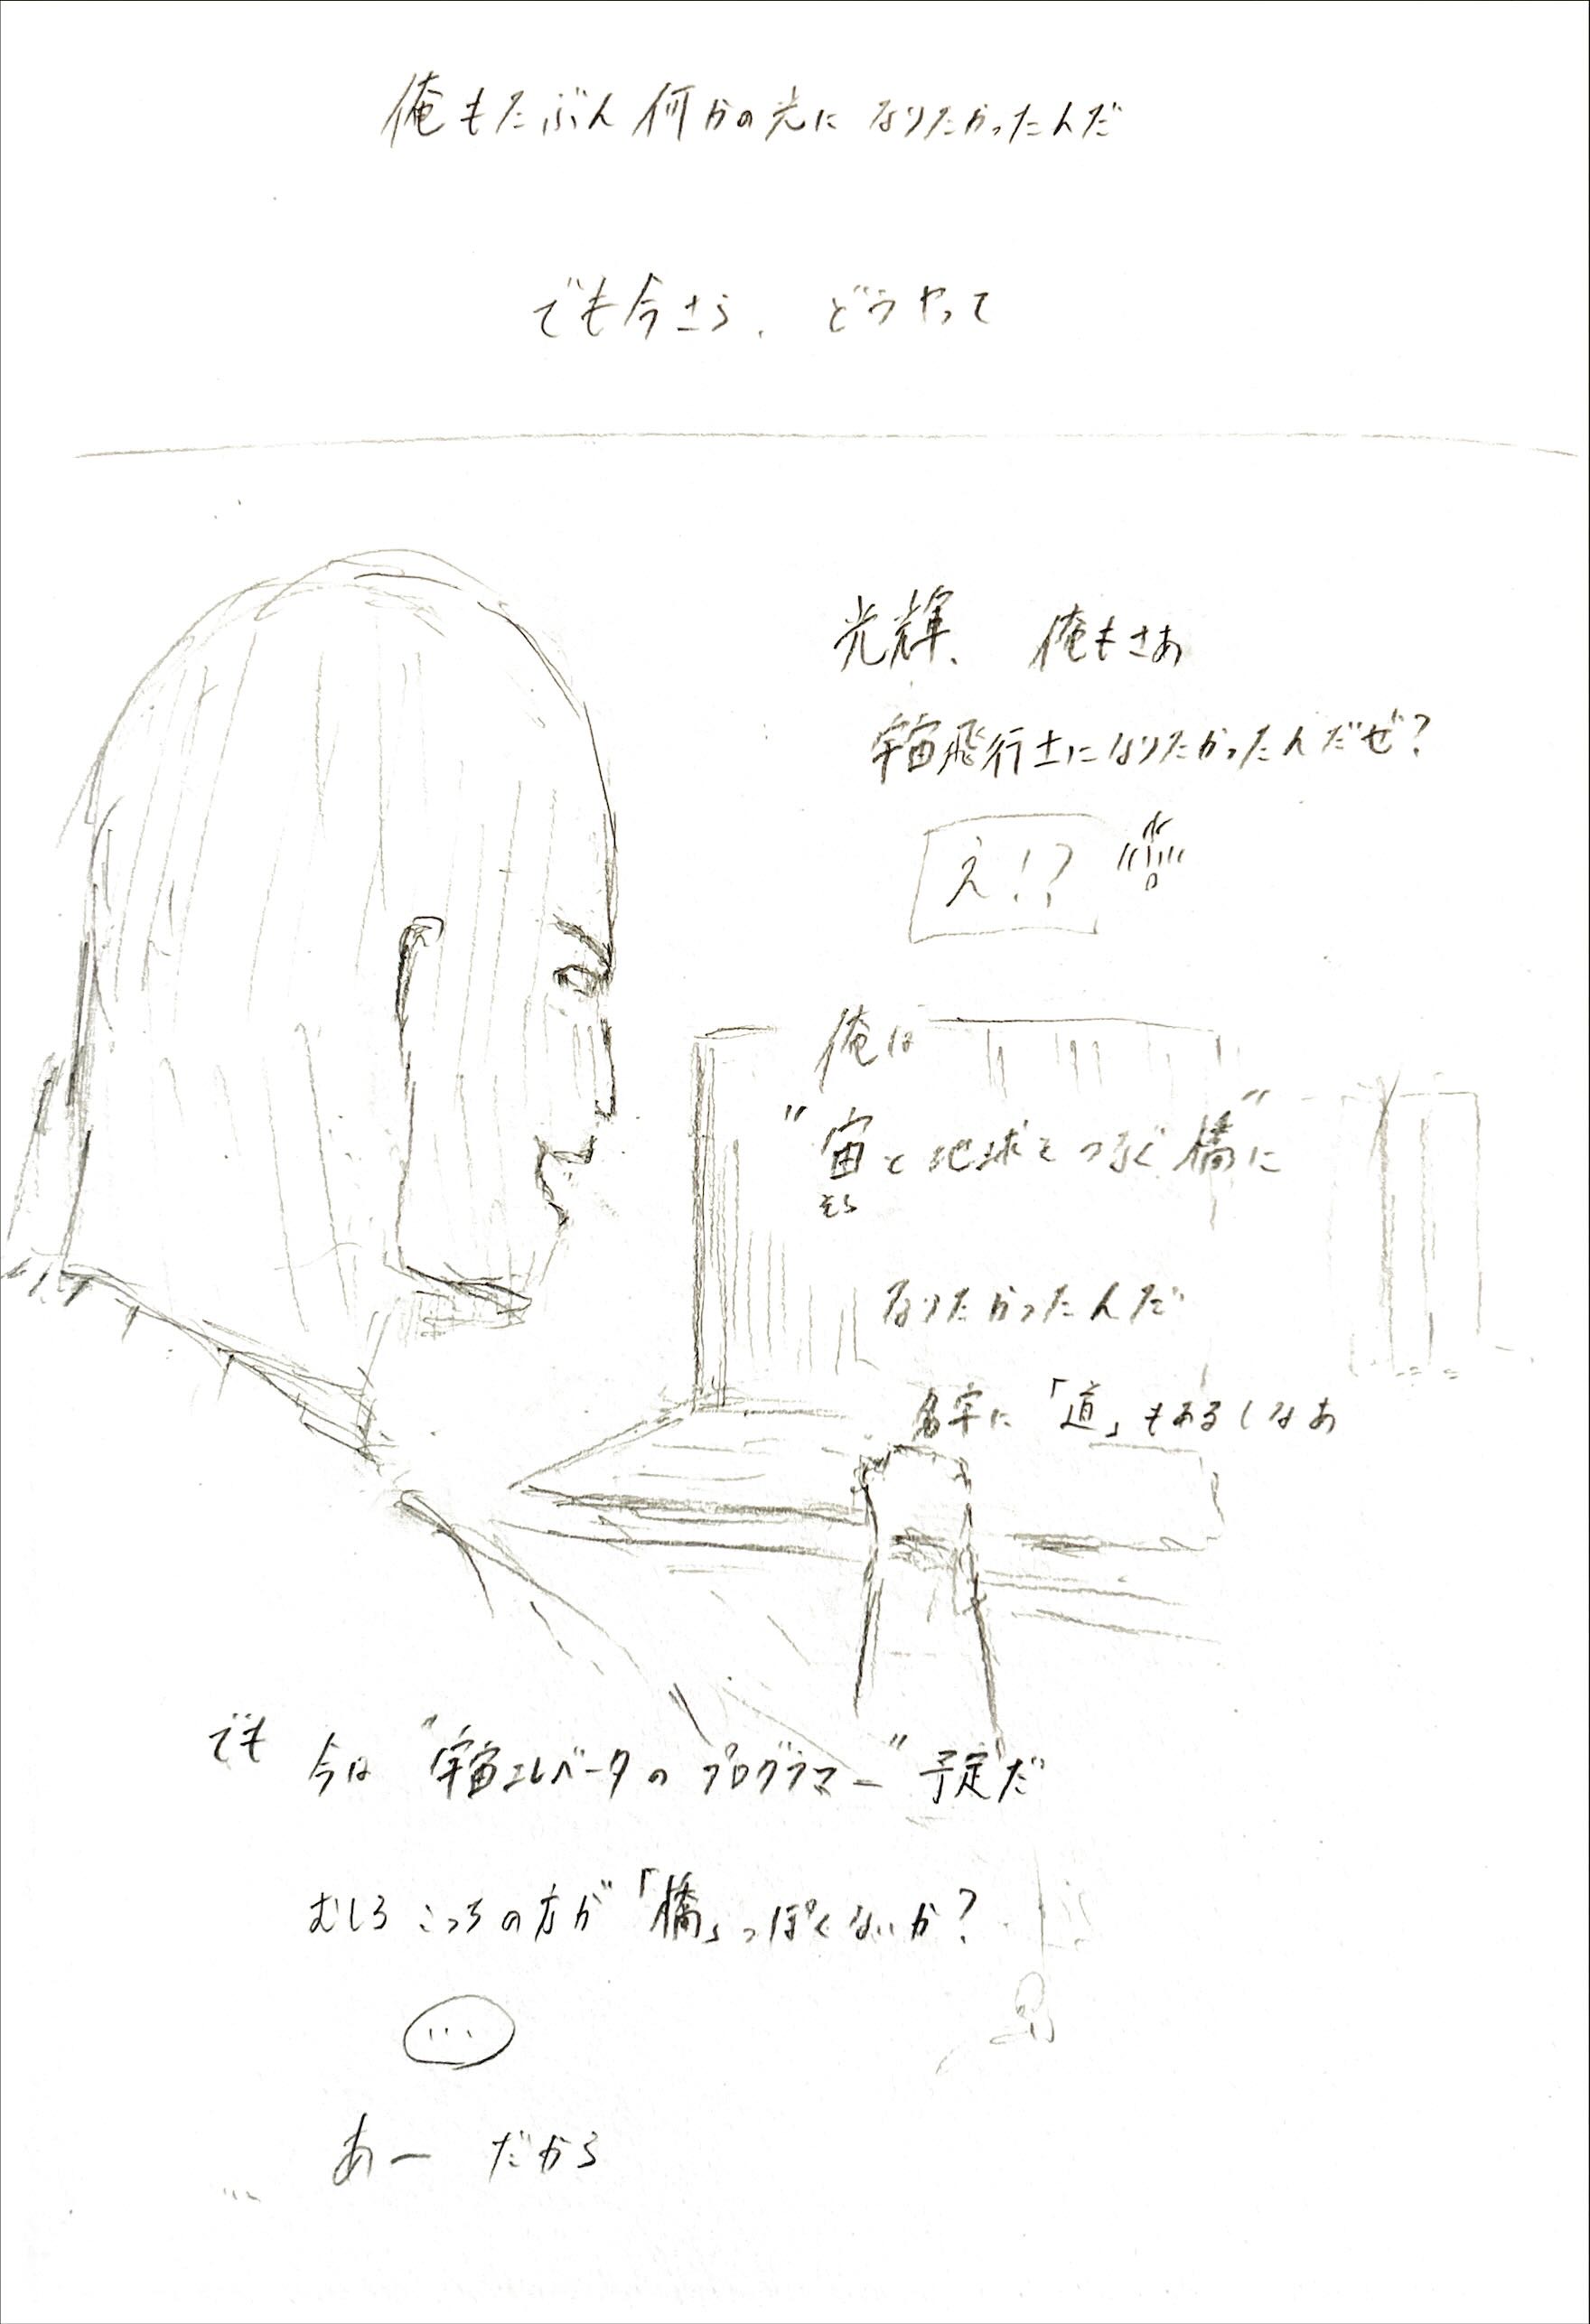 俺もたぶん何かの光になりたかったんだ
でも今さら、どうやって
光輝、俺もさあ
宇宙飛行士になりたかったんだぜ?
え!?
俺は
"宙と地球をつなぐ橋"に
そら
なりたかったんだ
名字に「道」もあるしなあ
でも 今は "宇宙エレベータのプログラマー" 予定だ
むしろこっちの方が「橋」っぽくないか?
...
あー だから